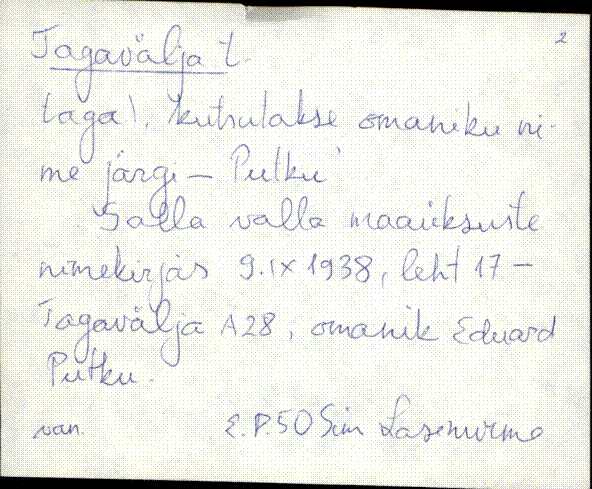 2
Tagavälja t.
taga). Kutsutakse omaniku ni-
me järgi – Putku'
Salla valla maaüksuste
nimekirjas 9.IX 1938, leht 17 –
Tagavälja A28, omanik Eduard
Putku.
van. E.P.50 Sim Lasinurme